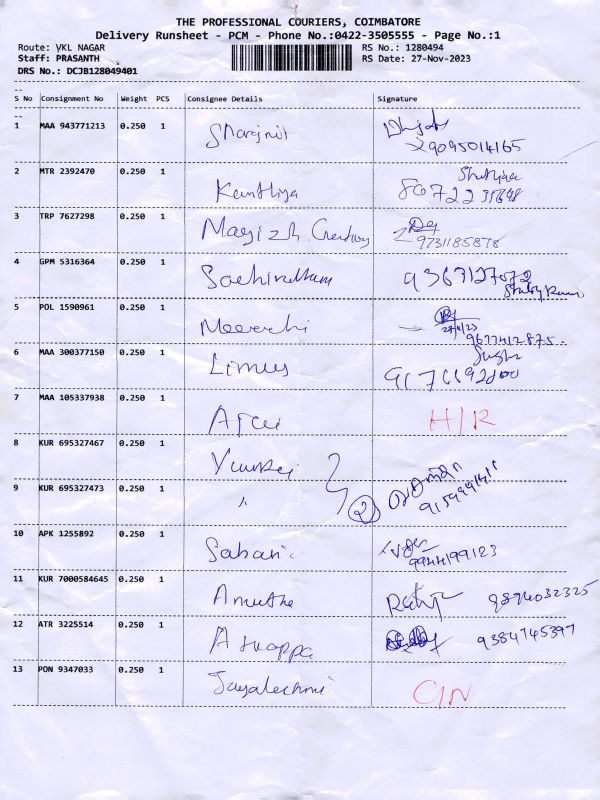 THE PROFESSIONAL COURIERS, COIMBATORE
Delivery Runsheet - PCM - Phone No.:0422-3505555 - Page No.:1
Route: VKL NAGAR RS No.: 1280494
Staff: PRASANTH RS Date: 27-Nov-2023
DRS No.: DCJB128049401
S No Consignment No Weight PCS Consignee Details Signature
1 MAA 943771213 0.250 1
9095014165
2 MTR 2392470 0.250 1 Kanthiya
3 TRP 7627298 0.250 1 Magizh
9731185878
4 GPM 5316364 0.250 1 9367127072
5 POL 1590961 0.250 1 Meenachi
27/11/23
9677412875
6 MAA 300377150 0.250 1 Limus
7 MAA 105337938 0.250 1 H/R
8 KUR 695327467 0.250 1
9 KUR 695327473 0.250 1 " 2
10 APK 1255892 0.250 1 Sabari
9944199123
11 KUR 7000584645 0.250 1 Amutha 9894032325
12 ATR 3225514 0.250 1 9384745397
13 PON 9347033 0.250 1 Jayalechmi